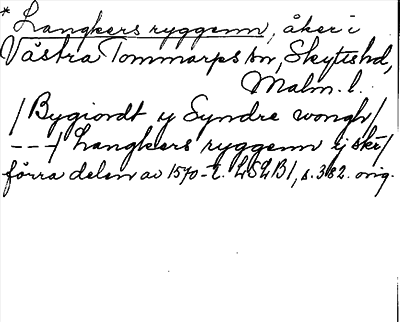 * Langkers ryggenn, åker i
Västra Tommarps sn, Skytts hd,
Malm. l.
/ Bygiordt y Syndre wongh /
---/ Langkers ryggenn ij skr /
förra delen av 1570-t. LSLB1, s. 382. orig.